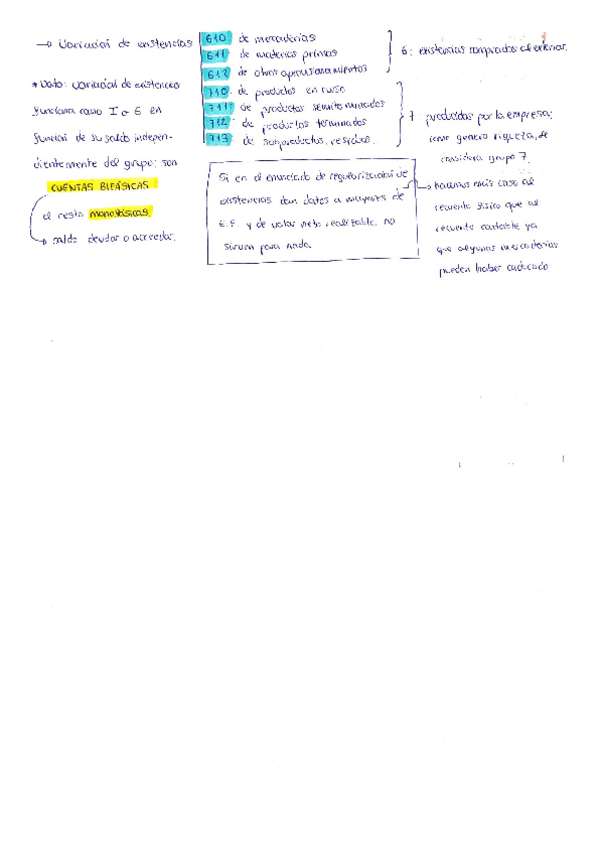 → Variación de existencias
610 de mercaderías
611 de materias primas
612 de otros aprovisionamientos
6: existencias compradas al exterior.
710 de productos en curso
711 de productos semiterminados
712 de productos terminados
713 de subproductos, residuos.
7 producidas por la empresa;
como genera riqueza, se
considera grupo 7.
* Nota: variación de existencias
funciona como I o G en
función de su saldo indepen-
dientemente del grupo: son
CUENTAS BIFÁSICAS
el resto monofásicas
→ saldo deudor o acreedor.
Si en el enunciado de regularización de
existencias dan datos a mayores de
E.F y de valor neto realizable, no
sirven para nada.
→ hacemos más caso al
recuento físico que al
recuento contable ya
que algunas mercaderías
pueden haber caducado